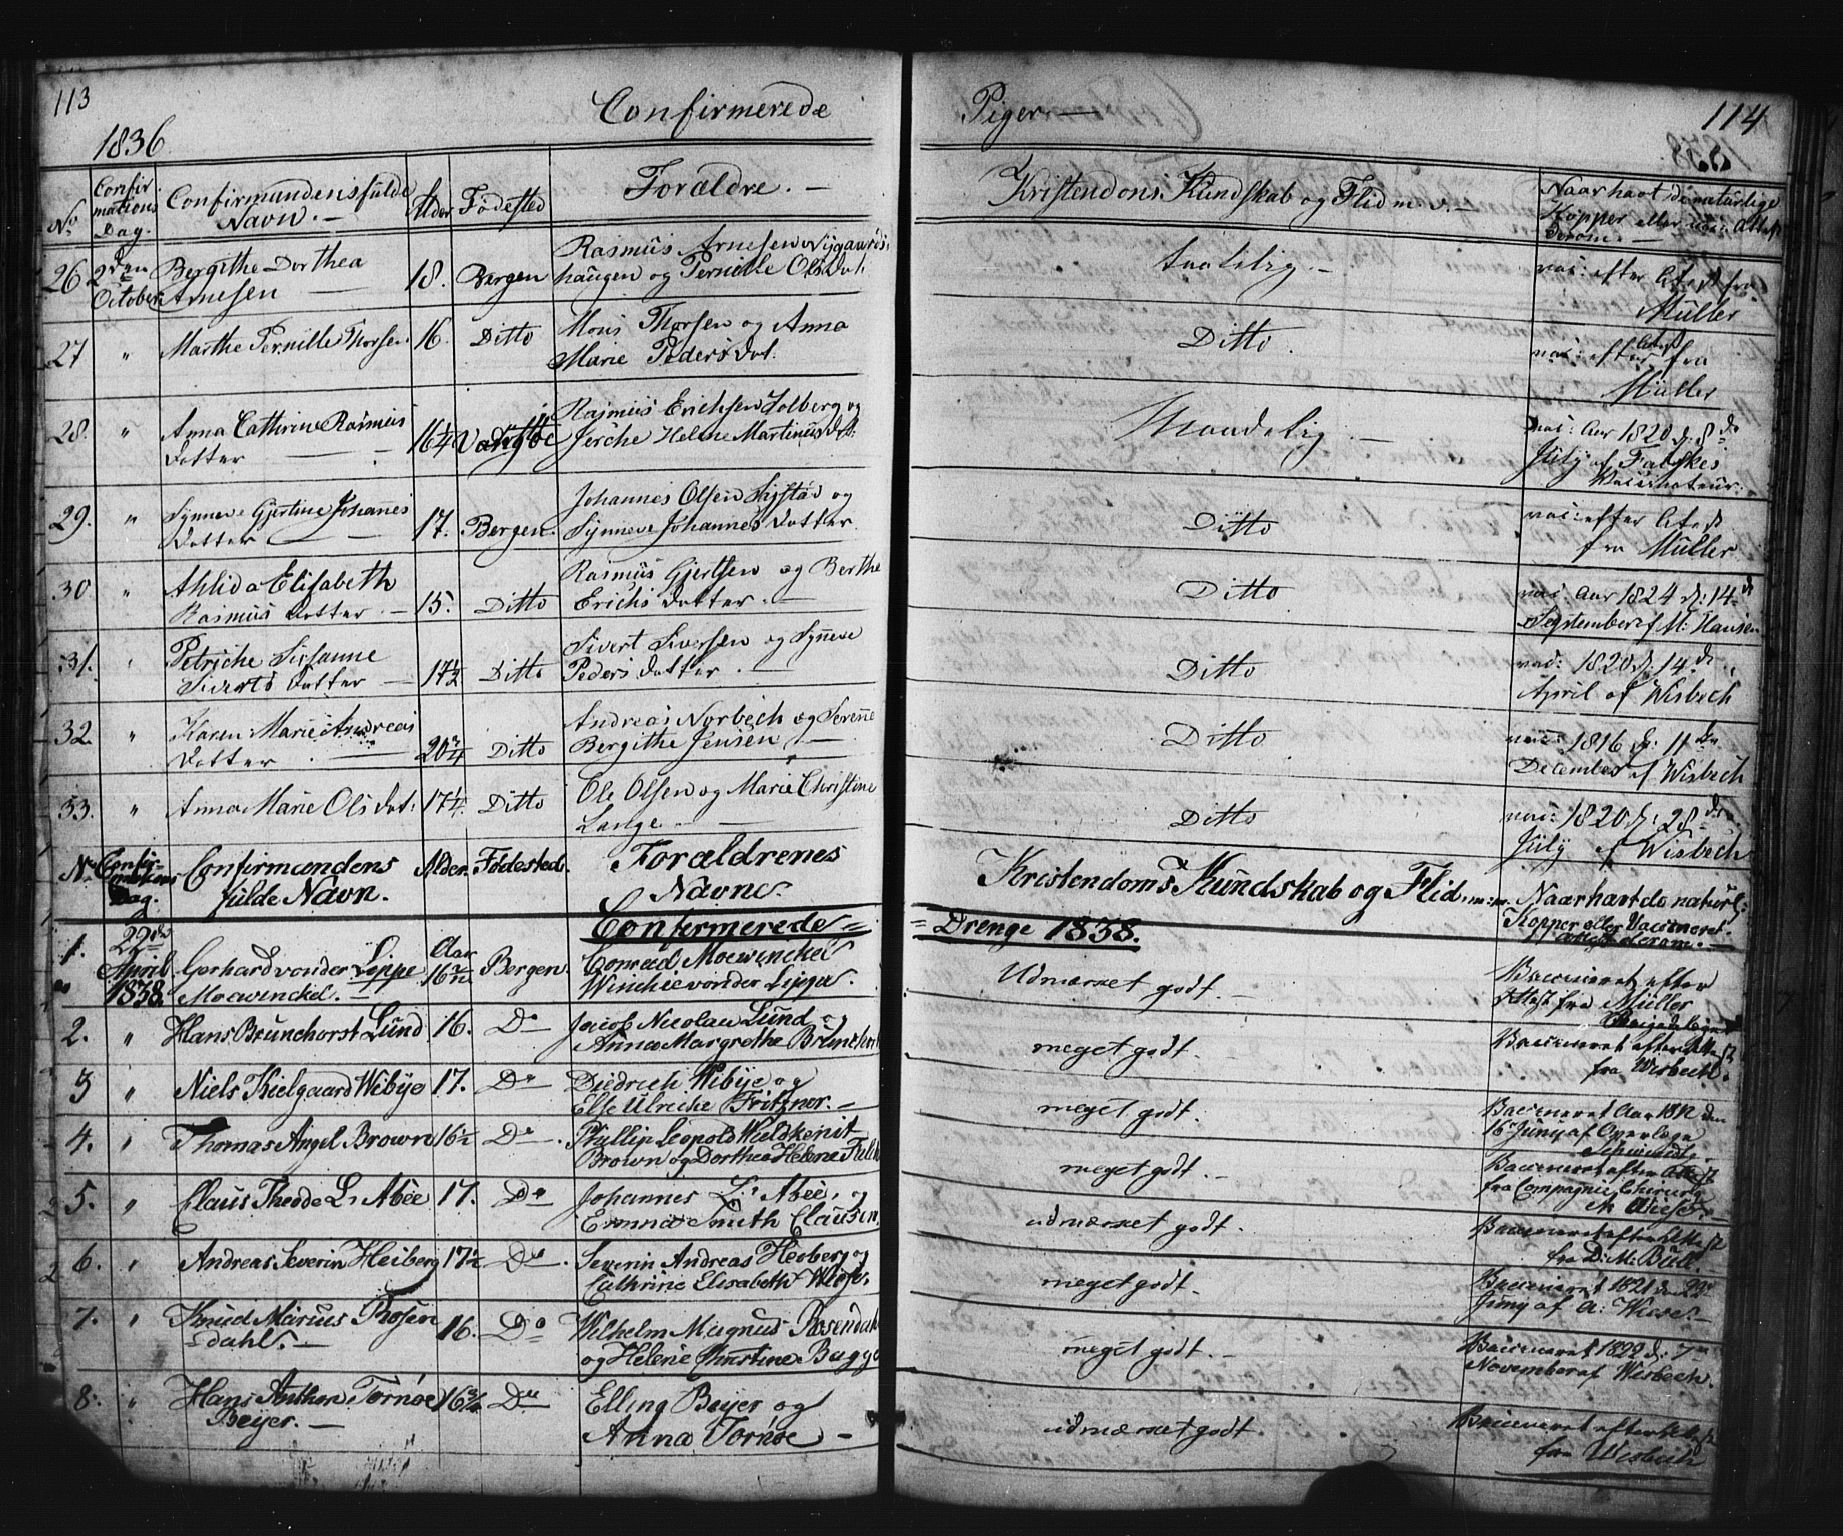 113
Confirmerede
Piger.—
114
1836
No
Confir
mations
Dag.
Confirmandens fulde
Navn.—
Alder
Fødested
Forældre.—
Kristendoms Kundskab og Flid m. v.—
Naar havt de naturlige
Kopper eller
derom.—
26
2den
October
Bergithe Dorthea
Arnesen
18.
Bergen
Rasmus Arnesen Nygaards
haugen og Pernille Olsdat:
taalelig.—
vac: efter Atest fra
Müller
27
"
Marthe Pernille Thorsen
16.
Ditto
Mons Thorsen og Anna
Marie Pedersdat.
Ditto.
vac: efter Atest fra
Müller
28.
"
Anna Cathrine Rasmus
Datter
16¼
Rasmus Erichsen Solberg og
Jirche Helene Martinusdat:
Maadelig.—
vac: Aar 1820 d. 8de
July af
Vaccinateur.
29.
"
Synneve Gjertine Johannes
Datter
17.
Bergen.
Johannes Olsen og
Synneve Johannes Datter.
Ditto
vac: efter Atest
fra Müller
30
"
Ahlida Elisabeth
Rasmus Datter.—
15.
Ditto
Rasmus Gjertsen og Berthe
Erichs Datter.—
Ditto
vac: Aar 1824 d: 14de
September af M: Hansen
31.
"
Petriche Susanne
Siverts Datter
17½
Ditto
Sivert Siversen og Synneve
Peders Datter.—
Ditto
vac: 1820 d. 14de
April af Wisbech
32.
"
Karen Marie Andreas
Datter
20¾
Ditto
Andreas Norbech og Serene
Bergithe Jensen.—
Ditto
vac: 1816 d: 11te
December af Wisbech
33.
"
Anna Marie Olsdat:
17¼
Ditto
Ole Olsen og Marie Christine
Lange.—
Ditto
vac: 1820 d: 28de
July af Wisbech
No
Confir-
mations
Dag.
Confirmandens
fulde Navn.
Alder.
Fødested.
Forældrenes
Navne.
Kristendoms Kundskab og Flid m: m:
Naar havt de naturl:
Kopper eller Vaccineret
attest derom.—
Confirmerede =
= Drenge 1838.
1.
22de
April
1838.
Gerhard vonder Lippe
Moewinckel.—
Aar
16½
Bergen.
Conrad Moewinckel
Winchie vonder Lippe.
Udmærket godt.—
Vaccineret efter
Attest fra Müller
2.
"
Hans Brunchorst Lund
16.
Do
Jacob Nicolau Lund og
Anna Margrethe
meget godt.
Vaccineret efter Attest
fra Wisbech.
3
"
Niels Kielgaard Wibye
17.
Do
Diedrich Wibye og
Else Ulriche Fritzner.—
meget godt.
Vaccineret Aar 1812 den
16 Juny af Overlæge
Schwindt.
4.
"
Thomas Angel Brown
16½
Do.
Phillip Leopold
Brown og Dorthea Helene
meget godt.—
Vaccineret efter Attest
fra Compagnie Chirurg
A Wiese.—
5.
"
Claus Theode L. Abée
17.
Do
Johannes L: Abée, og
Emma Smith Clausen
udmærket godt.
Vaccineret efter Attest
fra D: M: Bull.
6.
"
Andreas Severin Heiberg
17½
Do.
Severin Andreas Heiberg og
Cathrine Elisabeth Wiese.
meget godt.
Vaccineret 1821 den 29de
Juny af A: Wiese.—
7.
"
Knud Marius Rosen
dahl.—
16.
Do
Wilhelm Magnus Rosendahl
og Helene Christine Bugge
meget godt.—
Vaccineret 1822 d. 7de
November af Wisbech.
8.
"
Hans Anthon Tornøe
Beyer.—
16¾
Do
Elling Beyer og
Anna Tornøe—
udmærket godt.
Vaccineret efter Attest
fra Wisbech